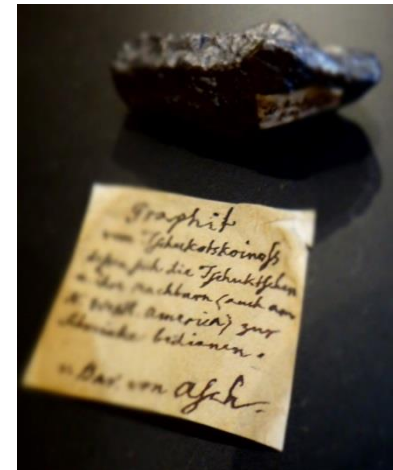 Graphit
vom Tschukotskoinoſs
deſsen ſich die Tſchuktſchen
u. ihre Nachbarn (auch am
N. Weſtl. America) zur
Schminke bedienen.
v. Bar. von Aſch.